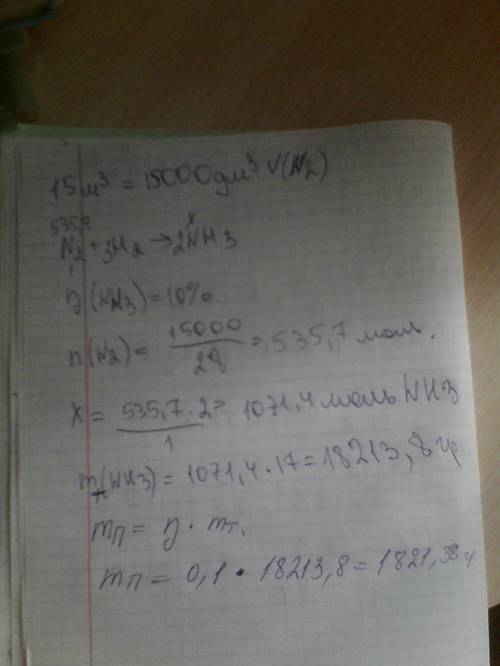 15 м³ = 15000 дм³ V(N₂)
535,7 x
N₂ + 3H₂ → 2NH₃
1
η(NH₃) = 10%.
n(N₂) = 15000/28 = 535,7 моль.
x = 535,7 · 2/1 = 1071,4 моль NH₃
m(NH₃) = 1071,4 · 17 = 18213,8 гр
mп = η · mт.
mп = 0,1 · 18213,8 = 1821,38 г